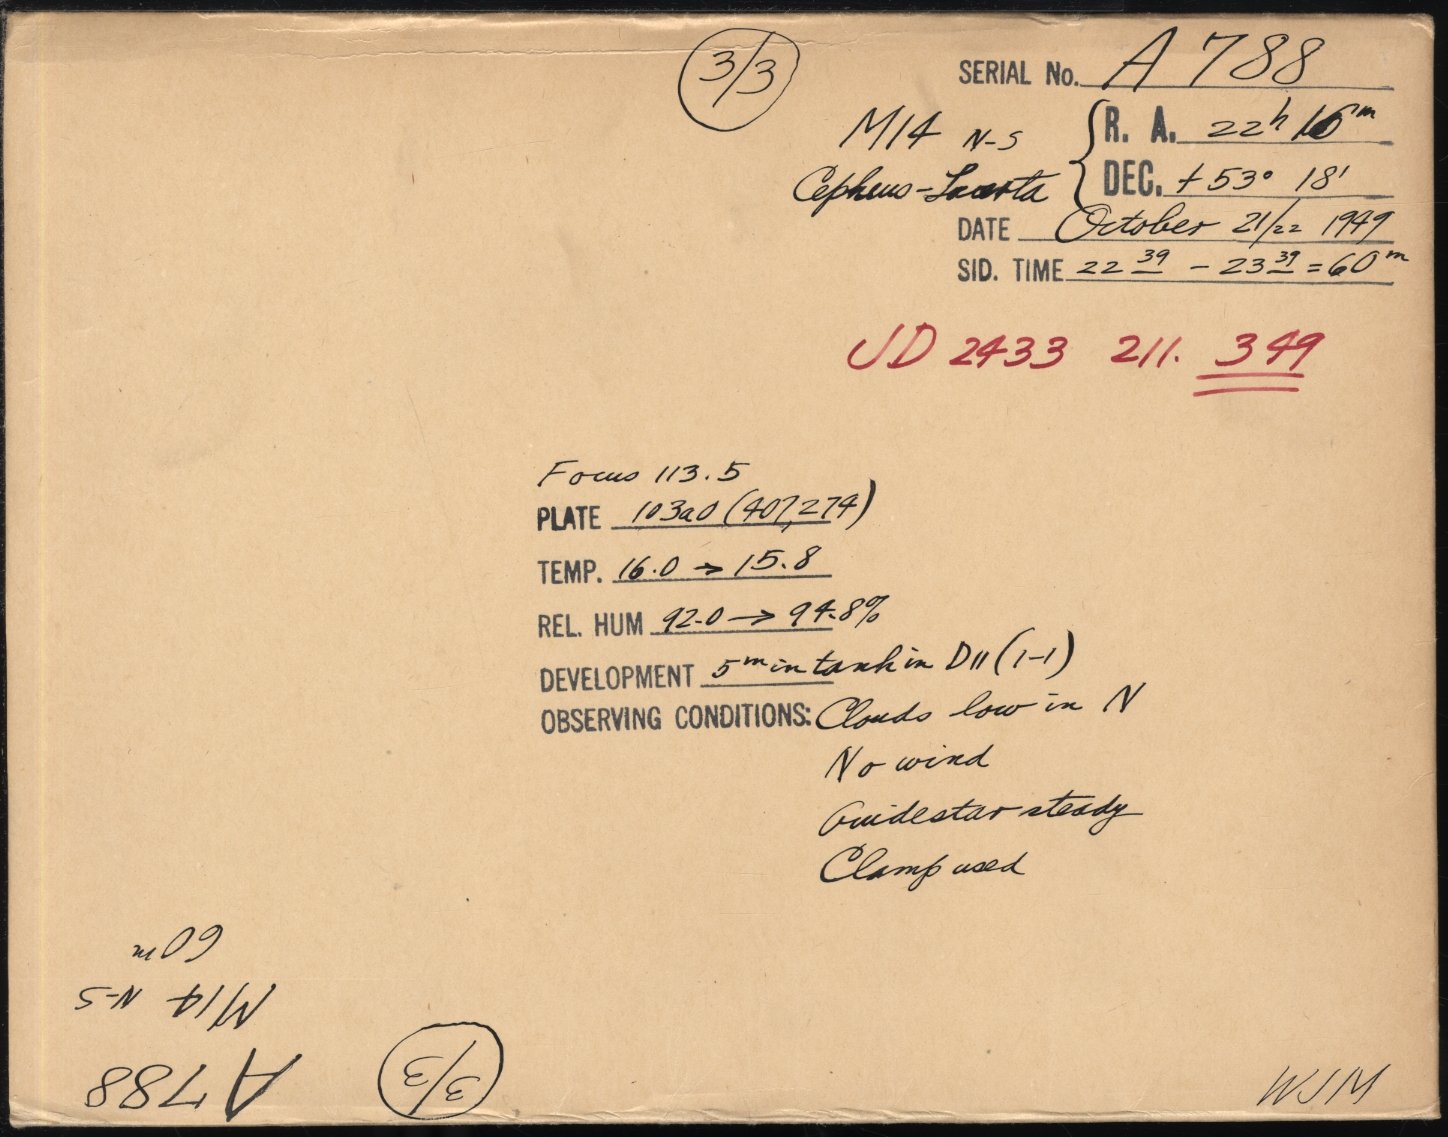 3/3
SERIAL No. A 788
M14 N-S
R. A. 22h 16m
Cepheus-Lacerta
DEC. +53° 18'
DATE October 21/22 1949
SID. TIME 22 39 - 23 39 = 60m
JD 2433 211. 349
Focus 113.5
PLATE 103aO (407,274)
TEMP. 16.0 → 15.8
REL. HUM 92.0 → 94.8%
DEVELOPMENT 5m in tank in D11 (1-1)
OBSERVING CONDITIONS: Clouds low in N
No wind
Guidestar steady
Clamp used
60m
M14 N-S
A 788
3/3
WJM